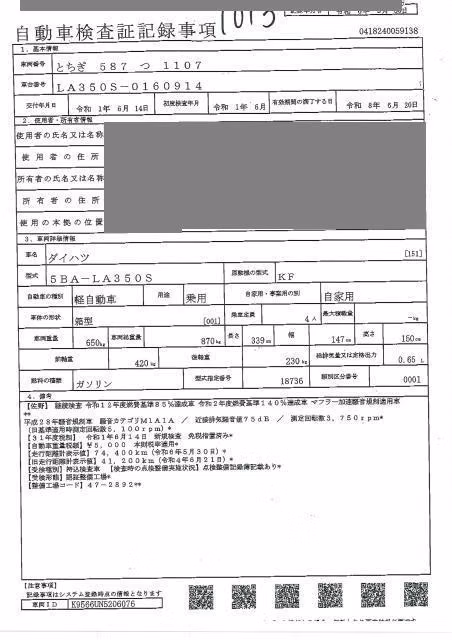 1013
自動車検査証記録事項
0418240059138
1. 基本情報
車両番号 とちぎ 587 つ 1107
車台番号 LA350S-0160914
交付年月日 令和 1年 6月 14日 初度検査年月 令和 1年 6月 有効期間の満了する日 令和 8年 6月 20日
2. 使用者・所有者情報
使用者の氏名又は名称
使用者の住所
所有者の氏名又は名称
所有者の住所
使用の本拠の位置
3. 車両詳細情報
車名 ダイハツ [151]
型式 5BA-LA350S 原動機の型式 KF
自動車の種別 軽自動車 用途 乗用 自家用・事業用の別 自家用
車体の形状 箱型 [001] 乗車定員 4人 最大積載量 -kg
車両重量 650kg 車両総重量 870kg 長さ 339cm 幅 147cm 高さ 150cm
前軸重 420kg 後軸重 230kg 総排気量又は定格出力 0.65 L
燃料の種類 ガソリン 型式指定番号 18736 類別区分番号 0001
4. 備考
【佐野】 継続検査 令和12年度燃費基準85%達成車 令和2年度燃費基準140%達成車 マフラー加速騒音規制適用車
**
平成28年騒音規制車 騒音カテゴリM1A1A / 近接排気騒音値75dB / 測定回転数3,750rpm*
(旧基準適用時測定回転数5,100rpm)*
【31年度税制】 令和1年6月14日 新規検査 免税措置済み*
【自動車重量税額】 ¥5,000 本則税率適用*
【走行距離計表示値】 74,400km (令和6年5月30日)*
【旧走行距離計表示値】 41,200km (令和4年6月21日)*
【受検種別】 持込検査車 【検査時の点検整備実施状況】 点検整備記録簿記載あり*
【受検形態】 認証整備工場*
【整備工場コード】 47-2892**
【注意事項】
記録事項はシステム登録時点の情報となります
車両ID K9566UN5206076